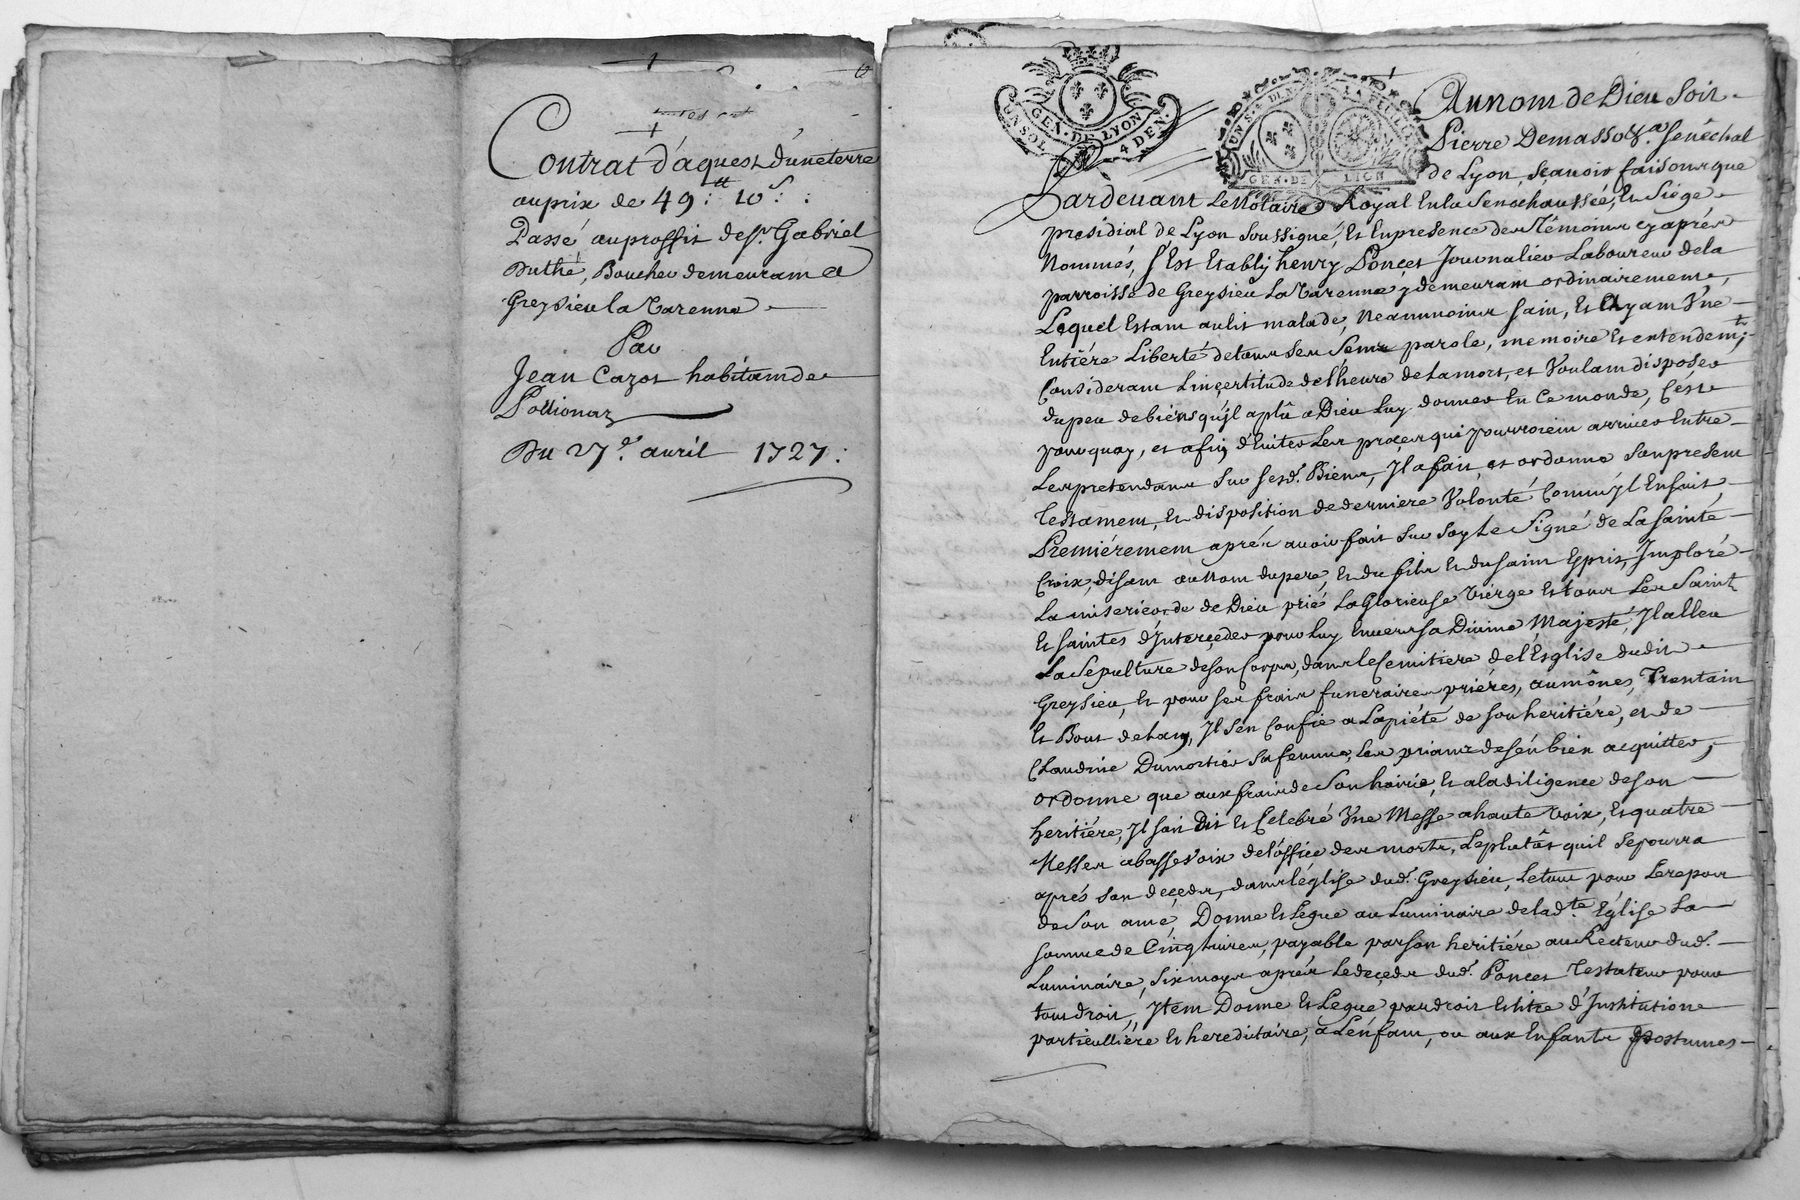 Contrat d'aquest d'une terre
au prix de 49.tt 10.s
Passé au proffit de Sr. Gabriel
Duthé, Boucher demeurant a
Greysieu la Varenne
Par
Jean Cazot habitant de
Pollionay
Du 27.e avril 1727.
GEN. DE LYON
UN SOL 4 DEN.
GEN. DE LION
Au nom de Dieu Soit
Pierre Demasso Sénéchal
de Lyon, sçavoir faisons que
Pardevant Le Nôtaire Royal En la Senéchaussée, Et Siége
présidial de Lyon Soussigné, Et En presence des Témoins cy aprés
Nommés, s'Est Etably henry Ponçet Journalier Laboureur de la
parroisse de Greysieu La Varenne y demeurant ordinairement,
Lequel Estant au lit malade, Neanmoins sain, Et Ayant Une
Entiére Liberté de tous ses Sens parole, memoire Et entendemt.
Considerant L'inçertitude de l'heure de La mort, et Voulant disposer
du peu de biéns qu'jl a plû a Dieu Luy donner En Ce monde, C'ést
pourquoy, et afin d'Euiter Les proçes qui pourroient arriuer Entre
Les pretendans Sur ses d. Biens, Jl a fait et ordonné Son present
Testament, Et disposition de derniere Volonté Comm'jl Ensuit,
Premiérement aprés auoir fait Sur Soy Le Signé de La Sainte
Croix, disant au Nom du pere, Et du fils Et du saint Esprit, Jmploré
La misericorde de Dieu prié La Glorieuse Viérge Et tous Les Saints
Et Saintes d'Jnterçeder pour Luy Enuers sa Diuine Majesté, Jl a Eleu
La Sepulture de son Corps, dans le Cemitiere de l'Esglise dudit
Greysieu, Et pour ses frais funeraires priéres, aumônes, Trentain
Et Bout de L'an, Jl s'en Confie a La piété de son heritiére, et de
Claudine Dumortier sa femme, Les priant de s'én bién acquitter,
ordonne que aux frais de Son hoirie, Et a la diligence de son
heritiére, Jl soit Dit Et Celebré Vne Messe a haute Voix, Et quatre
Messes a basse Voix de l'óffice des morts, Le plutôt qu'il Se pourra
aprés son deçeds, dans l'église dud. Greysieu, Le tout pour Le repos
de Son amé, Donne Et Legue au Luminaire de lad.te Eglise La
somme de Cinq Liures, payable par son heritiére au Recteur dud.
Luminaire, Six moys aprés Le deçeds dud. Ponçet Testateur pour
tous droits, Jtem Donne Et Legue par droit Et titre d'Jnstitution
particulliére Et hereditaire, à L'enfant, ou aux Enfants postumes